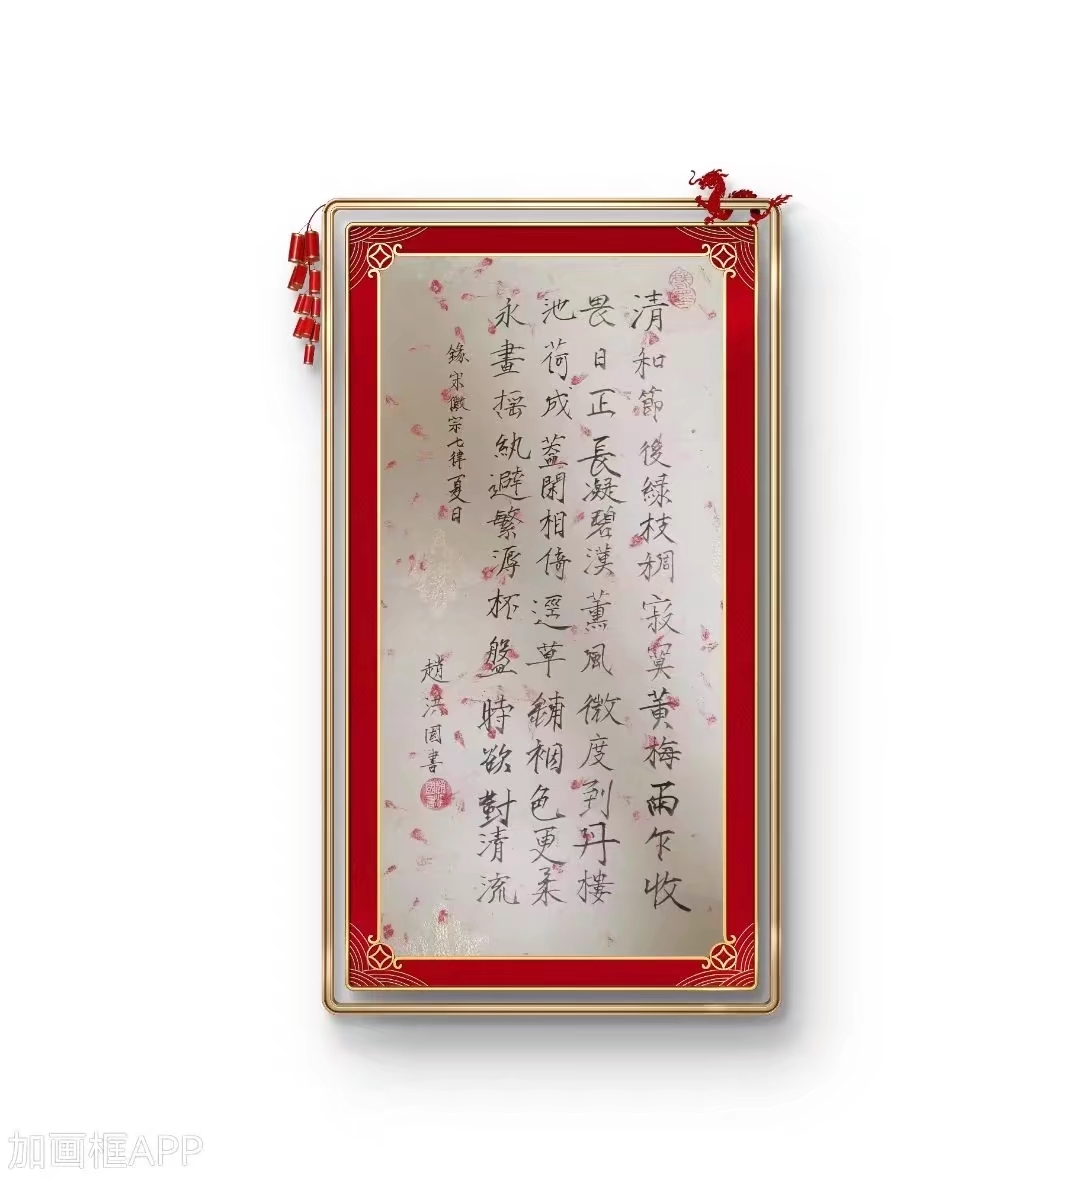 清和節後緑枝稠寂寞黃梅雨乍收
畏日正長凝碧漢薰風微度到丹樓
池荷成蓋閑相倚逕草鋪裀色更柔
永畫揺紈避繁溽杯盤時欲對清流
錄宋徽宗七律夏日
趙洪園書
加画框APP